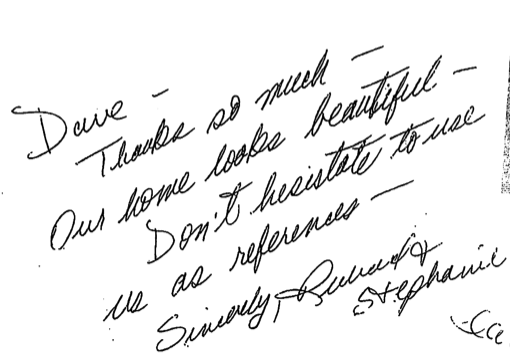 Dave -
Thanks so much -
Our home looks beautiful -
Don't hesistate to use
us as references -
Sincerely, &
Stephanie